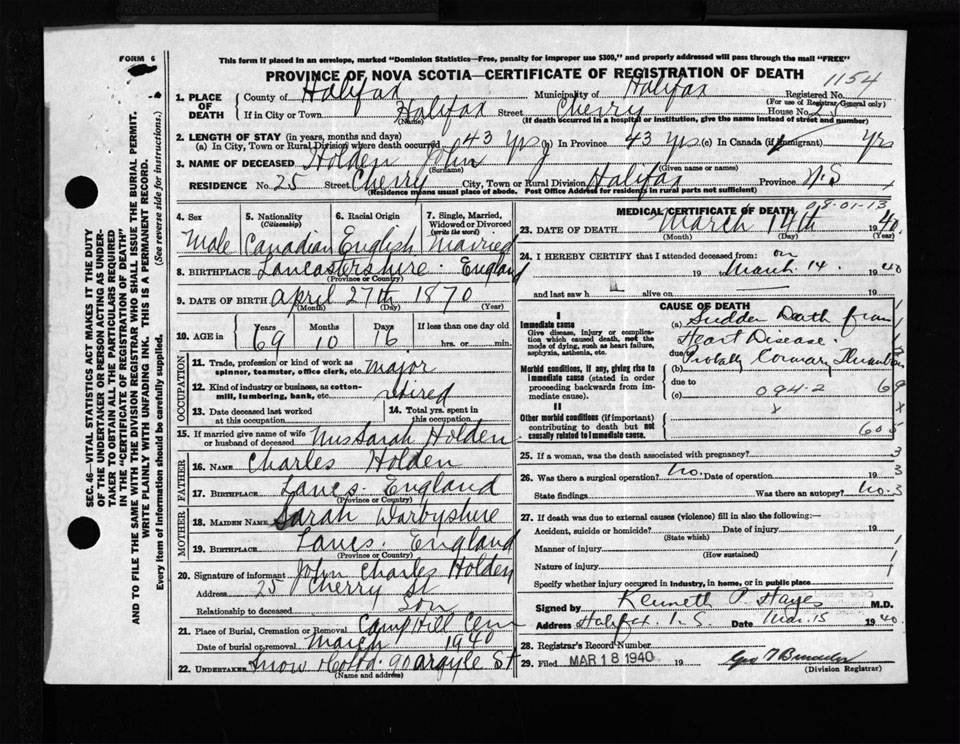 FORM 6
This form if placed in an envelope, marked "Dominion Statistics—Free, penalty for improper use $300," and properly addressed will pass through the mail "FREE"
PROVINCE OF NOVA SCOTIA—CERTIFICATE OF REGISTRATION OF DEATH
1154
SEC. 46—VITAL STATISTICS ACT MAKES IT THE DUTY
OF THE UNDERTAKER OR PERSON ACTING AS UNDER-
TAKER TO OBTAIN ALL THE PARTICULARS REQUIRED
IN THE "CERTIFICATE OF REGISTRATION OF DEATH"
AND TO FILE THE SAME WITH THE DIVISION REGISTRAR WHO SHALL ISSUE THE BURIAL PERMIT.
WRITE PLAINLY WITH UNFADING INK. THIS IS A PERMANENT RECORD.
Every item of information should be carefully supplied. (See reverse side for instructions.)
1. PLACE OF DEATH
County of Halifax Municipality of Halifax Registered No.
(For use of Registrar General only)
If in City or Town Halifax Street Cherry House No. 25
(Name) (If death occurred in a hospital or institution, give the name instead of street and number)
2. LENGTH OF STAY (in years, months and days)
(a) In City, Town or Rural Division where death occurred 43 yrs (b) In Province 43 yrs (c) In Canada (if immigrant) Yrs
3. NAME OF DECEASED Holden John
(Surname) (Given name or names)
RESIDENCE No. 25 Street Cherry City, Town or Rural Division Halifax Province N.S
(Residence means usual place of abode. Post Office Address for residents in rural parts not sufficient)
4. Sex Male
5. Nationality (Citizenship) Canadian
6. Racial Origin English
7. Single, Married, Widowed or Divorced (write the word) Married
8. BIRTHPLACE Lancastershire. England
(Province or Country)
9. DATE OF BIRTH April 27th 1870
(Month) (Day) (Year)
10. AGE in Years 69 Months 10 Days 16 If less than one day old
hrs. or min.
OCCUPATION
11. Trade, profession or kind of work as
spinner, teamster, office clerk, etc. Major
12. Kind of industry or business, as cotton-
mill, lumbering, bank, etc. retired
13. Date deceased last worked
at this occupation
14. Total yrs. spent in
this occupation
15. If married give name of wife
or husband of deceased Mrs Sarah Holden
FATHER
16. NAME Charles Holden
17. BIRTHPLACE Lancs. England
(Province or Country)
MOTHER
18. MAIDEN NAME Sarah Darbyshire
19. BIRTHPLACE Lancs. England
(Province or Country)
20. Signature of informant John Charles Holden
Address 25 Cherry St
Relationship to deceased Son
21. Place of Burial, Cremation or Removal Camp Hill Cem
Date of burial or removal March 1940
22. UNDERTAKER Snow & Co Ltd. 90 Argyle St
(Name and address)
MEDICAL CERTIFICATE OF DEATH
08-01-13
23. DATE OF DEATH March 14th 1940.
(Month) (Day) (Year)
24. I HEREBY CERTIFY that I attended deceased from: on
19 to March. 14 1940
and last saw h alive on 19
CAUSE OF DEATH
I
Immediate cause
Give disease, injury or complica-
tion which caused death, not the
mode of dying, such as heart failure,
asphyxia, asthenia, etc.
(a) Sudden Death from
Heart Disease.
due to Probably Coronary
Morbid conditions, if any, giving rise to
immediate cause (stated in order
proceeding backwards from im-
mediate cause).
(b)
due to 69
(c) 094.2
II
Other morbid conditions (if important)
contributing to death but not
causally related to immediate cause.
x
x
605
25. If a woman, was the death associated with pregnancy? 3
26. Was there a surgical operation? No. Date of operation 19 3
State findings Was there an autopsy? No. 3
27. If death was due to external causes (violence) fill in also the following:—
Accident, suicide or homicide? Date of injury 19
(State which)
Manner of injury 1
(How sustained)
Nature of injury 1
Specify whether injury occurred in industry, in home, or in public place
Signed by Kenneth P. Hayes M.D.
Address Halifax. N.S. Date Mar. 15 1940
28. Registrar's Record Number
29. Filed MAR 18 1940 19
(Division Registrar)